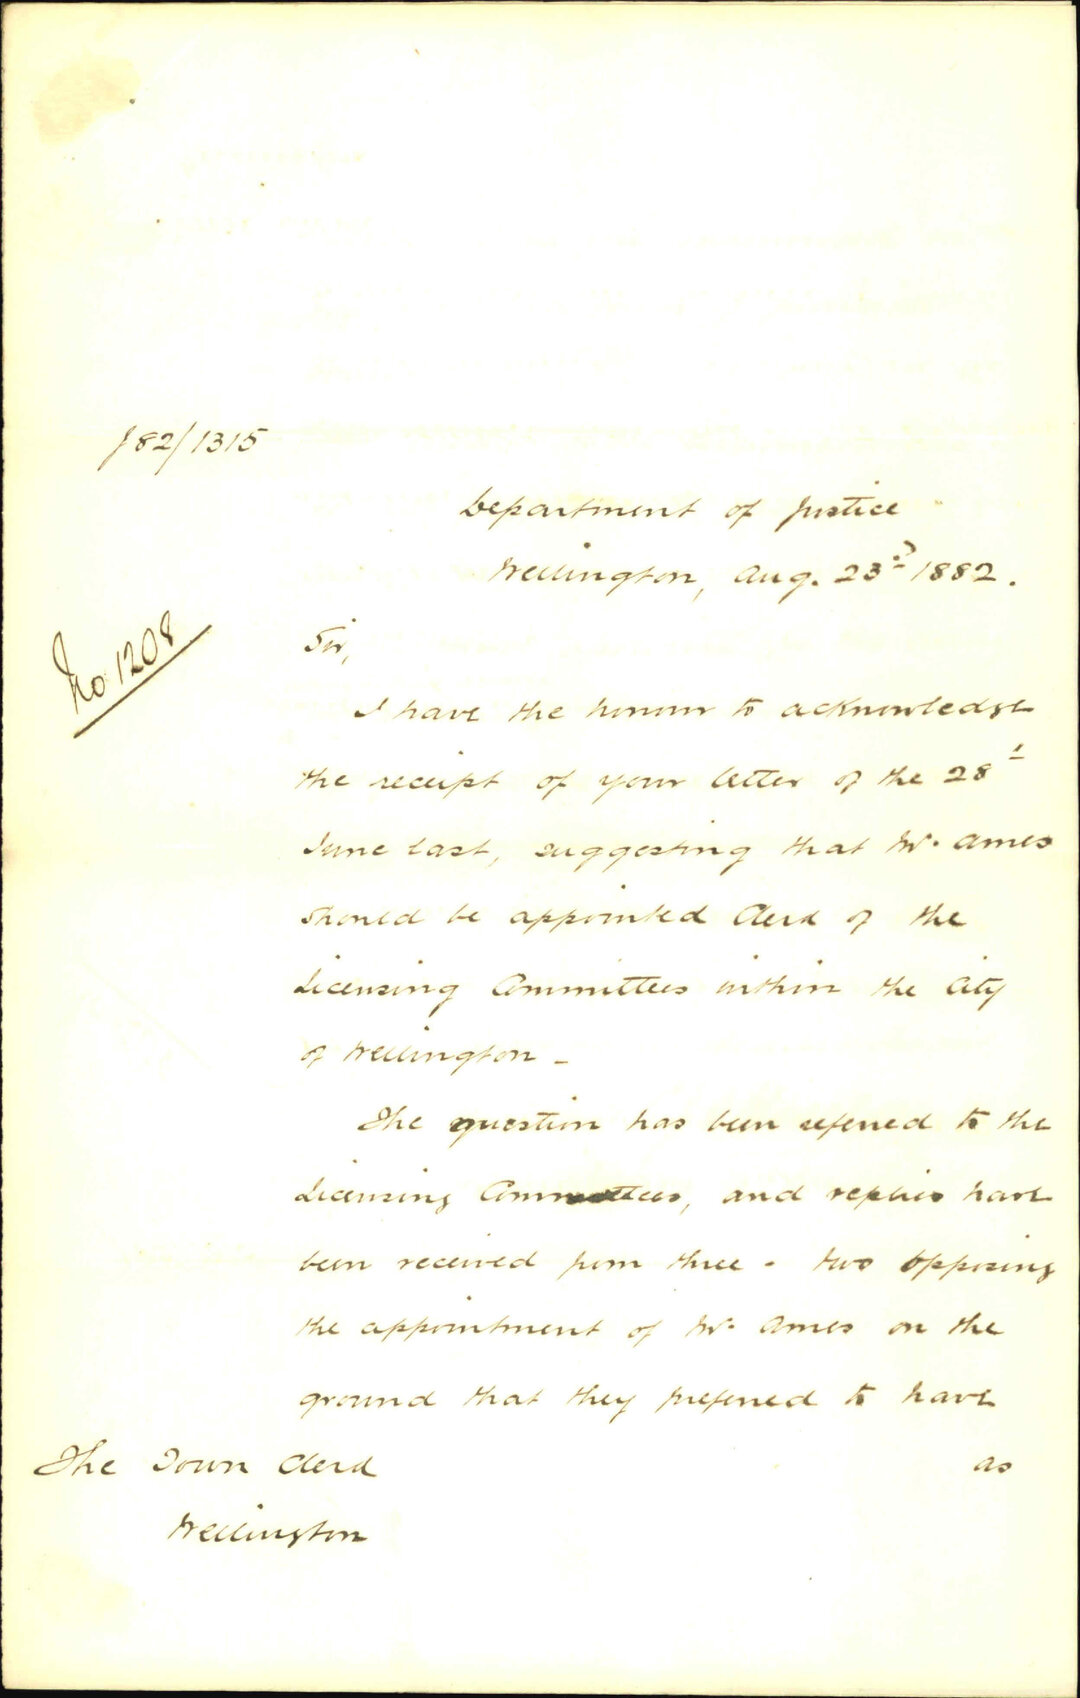 J82/1315
Department of Justice
Wellington, Aug. 23rd 1882.
No 1208
Sir,
I have the honour to acknowledge
the receipt of your letter of the 28th
June last, suggesting that Mr. Ames
should be appointed Clerk of the
Licensing Committees within the City
of Wellington -
The question has been referred to the
Licensing Committees, and replies have
been received from three - two opposing
the appointment of Mr. Ames on the
ground that they preferred to have
The Town Clerk
as
Wellington